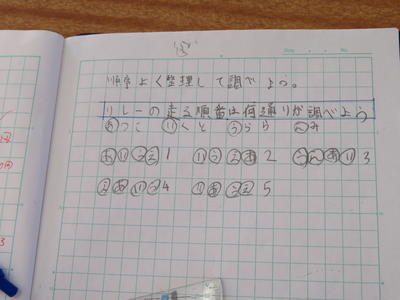 順序よく整理して調べよう。
リレーの走る順番は何通りか調べよう
あつこ いくと うらら えみ
あいうえ1 いうえあ2 うえあい3
えあいう4 いあうえ5